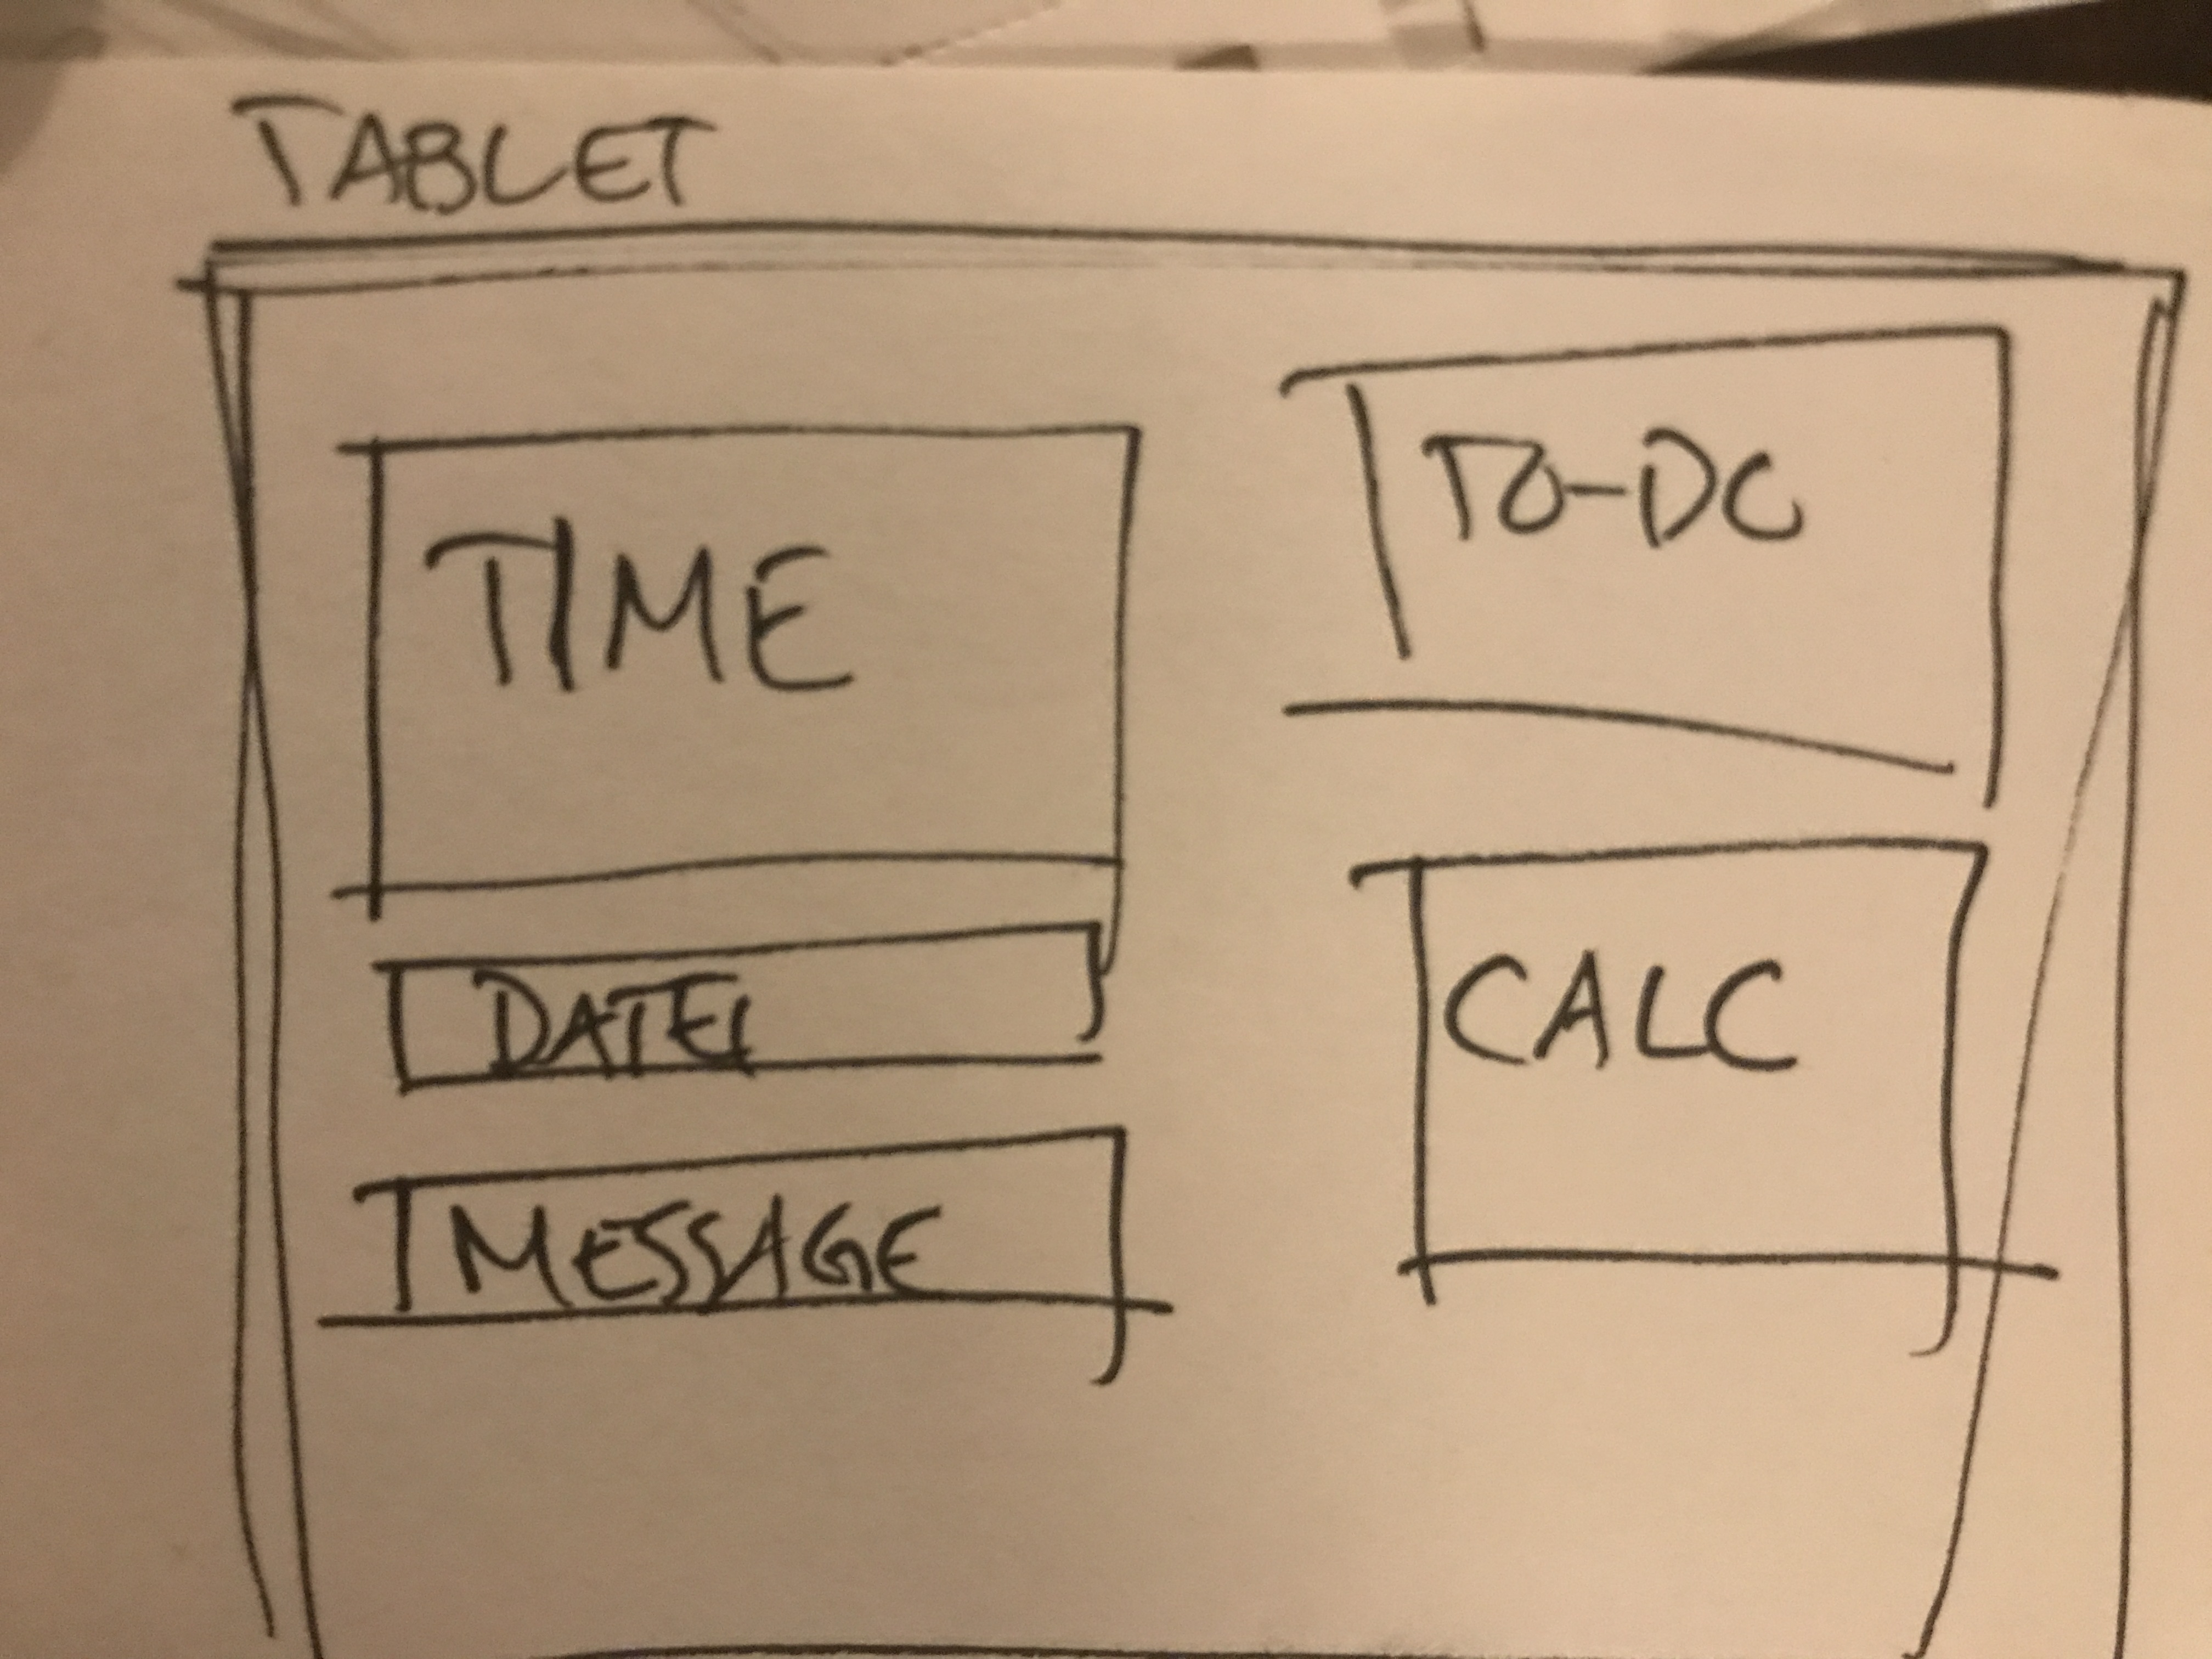 TABLET
TIME
DATE
MESSAGE
TO-DO
CALC